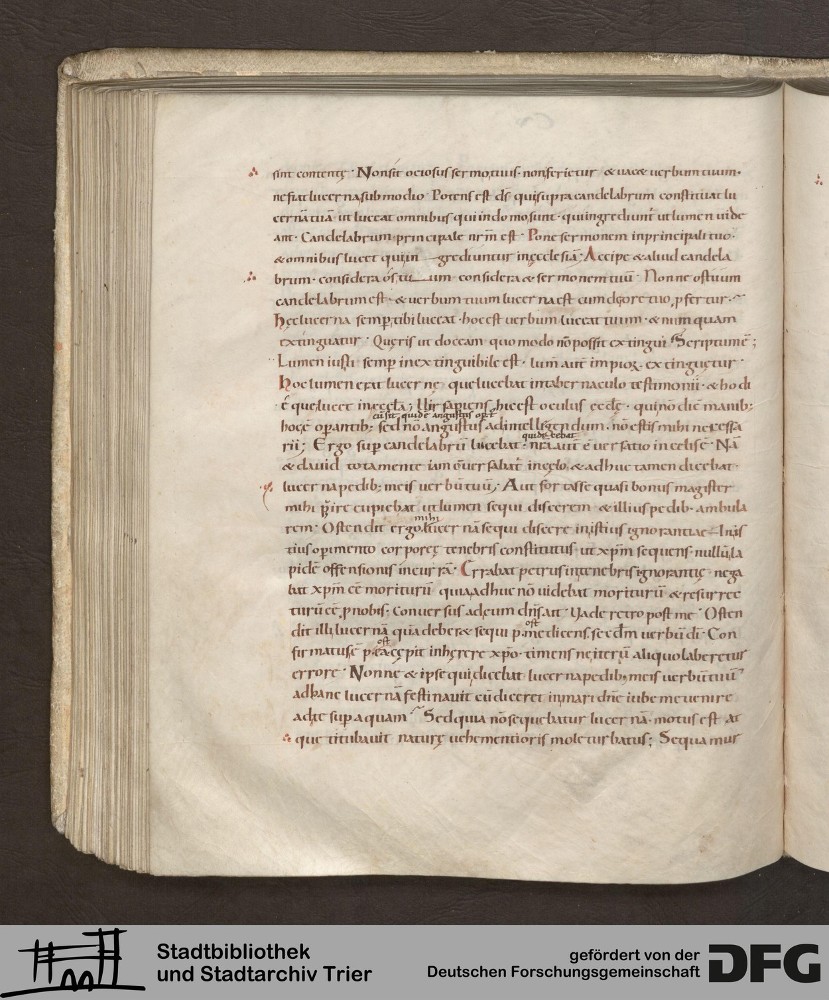 sint contentę · Non sit ociosus sermo tuus · non ferietur · & uacæ uerbum tuum ·
ne fiat lucerna sub modio · Potens est ds qui supra candelabrum constituat lu
cernā tuā · ut luceat omnibus qui in domo sunt · qui ingrediunt̄ ut lumen uide
ant · Candelabrum principale nrm̄ est · Pone sermonem in principali tuo ·
& omnibus lucet qui in grediuntur in ęclesiā · Accipe & aliud candela
brum · considera os tu um considera & sermonem tuū · Nonne os tuum
candelabrum est · & uerbum tuum lucerna est cum de ore tuo, p̄fertur ·
Hęc lucerna semp̄ tibi luceat · hoc est uerbum luceat tuum · & numquam
extinguatur · Queris ut doceam quomodo nō possit extingui · Scriptum ē ;
Lumen iusti semp̄ inextinguibile est · lum̄ aut̄ impioꝝ extinguetur ·
Hoc lumen erat lucerne · que lucebat in tabernaculo testimonii · & hodi
ē que lucet in ęccla ; Uir sapiens hic est oculus ęccle · qui nō dic̄ manib;
cū sit quidē angustus op̄
hoc ē op̄antib; sed nō angustus ad intellegendum · nō estis mihi necessa
quidē
rii ; Ergo sup̄ candelabrū lucebat · nr̄a aut̄ ē uersatio in celis ē · Nā
& dauid tota mente iam cōuersabat̄ in cęlo, & adhuc tamen dicebat ·
lucerna pedib; meis uerbū tuū ; Aut fortasse quasi bonus magister
mihi p̄ire cupiebat, ut lumen sequi discerem · & illius pedib · ambula
mihi
rem · Ostendit ergo lucernā sequi discere in istius ignorantiae in is
tius op̄imento corporeę tenebris constitutus, ut xp̄m sequens nullū la
pidē offensionis incurrā · Errabat petrus in tenebris ignorantię · nega
bat xp̄m ēē moriturū · quia adhuc nō uidebat moriturū & resurrec
turū ēē p nobis ; Conuersus ad eum dn̄s ait · Uade retro post me · Osten
ost
dit illi lucernā quia deber& sequi p̄ me dicens, secdm̄ uerbū di · Con
ost
firmatus ē p̄ ea cępit inherere xp̄o · timens ne iterū aliquo laberetur
errore · Nonne & ipse qui dicebat lucerna pedib; meis uerbū tuū
ad hanc lucernā festinauit cū diceret in mari dn̄e iube me uenire
ad te sup̄ aquam · Sed quia nō sequebatur lucernā · motus est at
que titubauit naturę uehementioris mole turbatus ; Sequamur
Stadtbibliothek
und Stadtarchiv Trier
gefördert von der
Deutschen Forschungsgemeinschaft
DFG